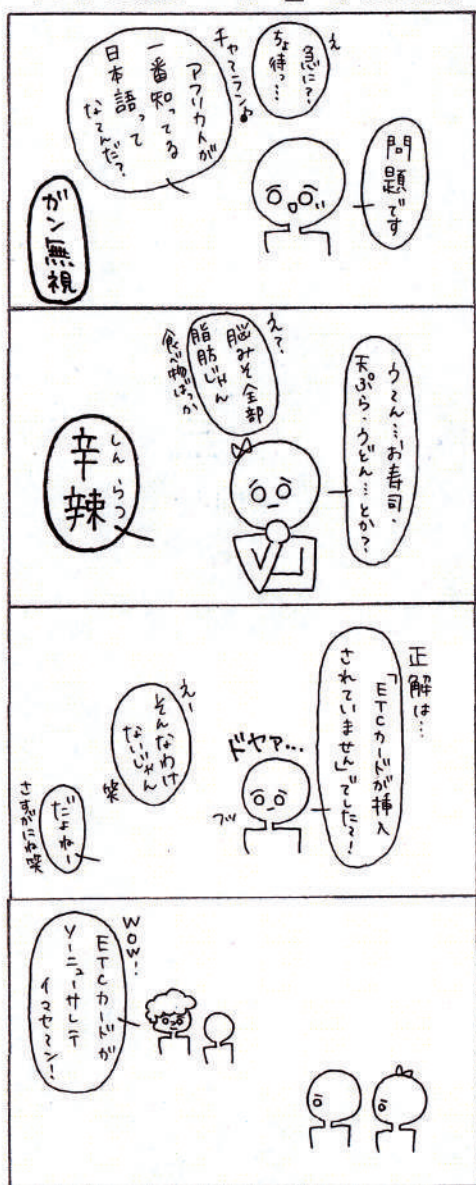 問題です
え
急に?
ちょ待っ…
チャラララン♪
アフリカ人が
一番知ってる
日本語って
なてんだ?
ガン無視
うーん…お寿司、
天ぷら、うどん…とか?
え?
脳みそ全部
脂肪じゃん
食べ物ばっか
しんらつ
辛辣
正解は…
「ETCカードが挿入
されていません」でしたー!
ドヤァ…
フッ
えー
そんなわけ
ないじゃん
笑
だよねー
さすがにね笑
WOW!
ETCカードが
ソーニューサレテ
イマセーン!